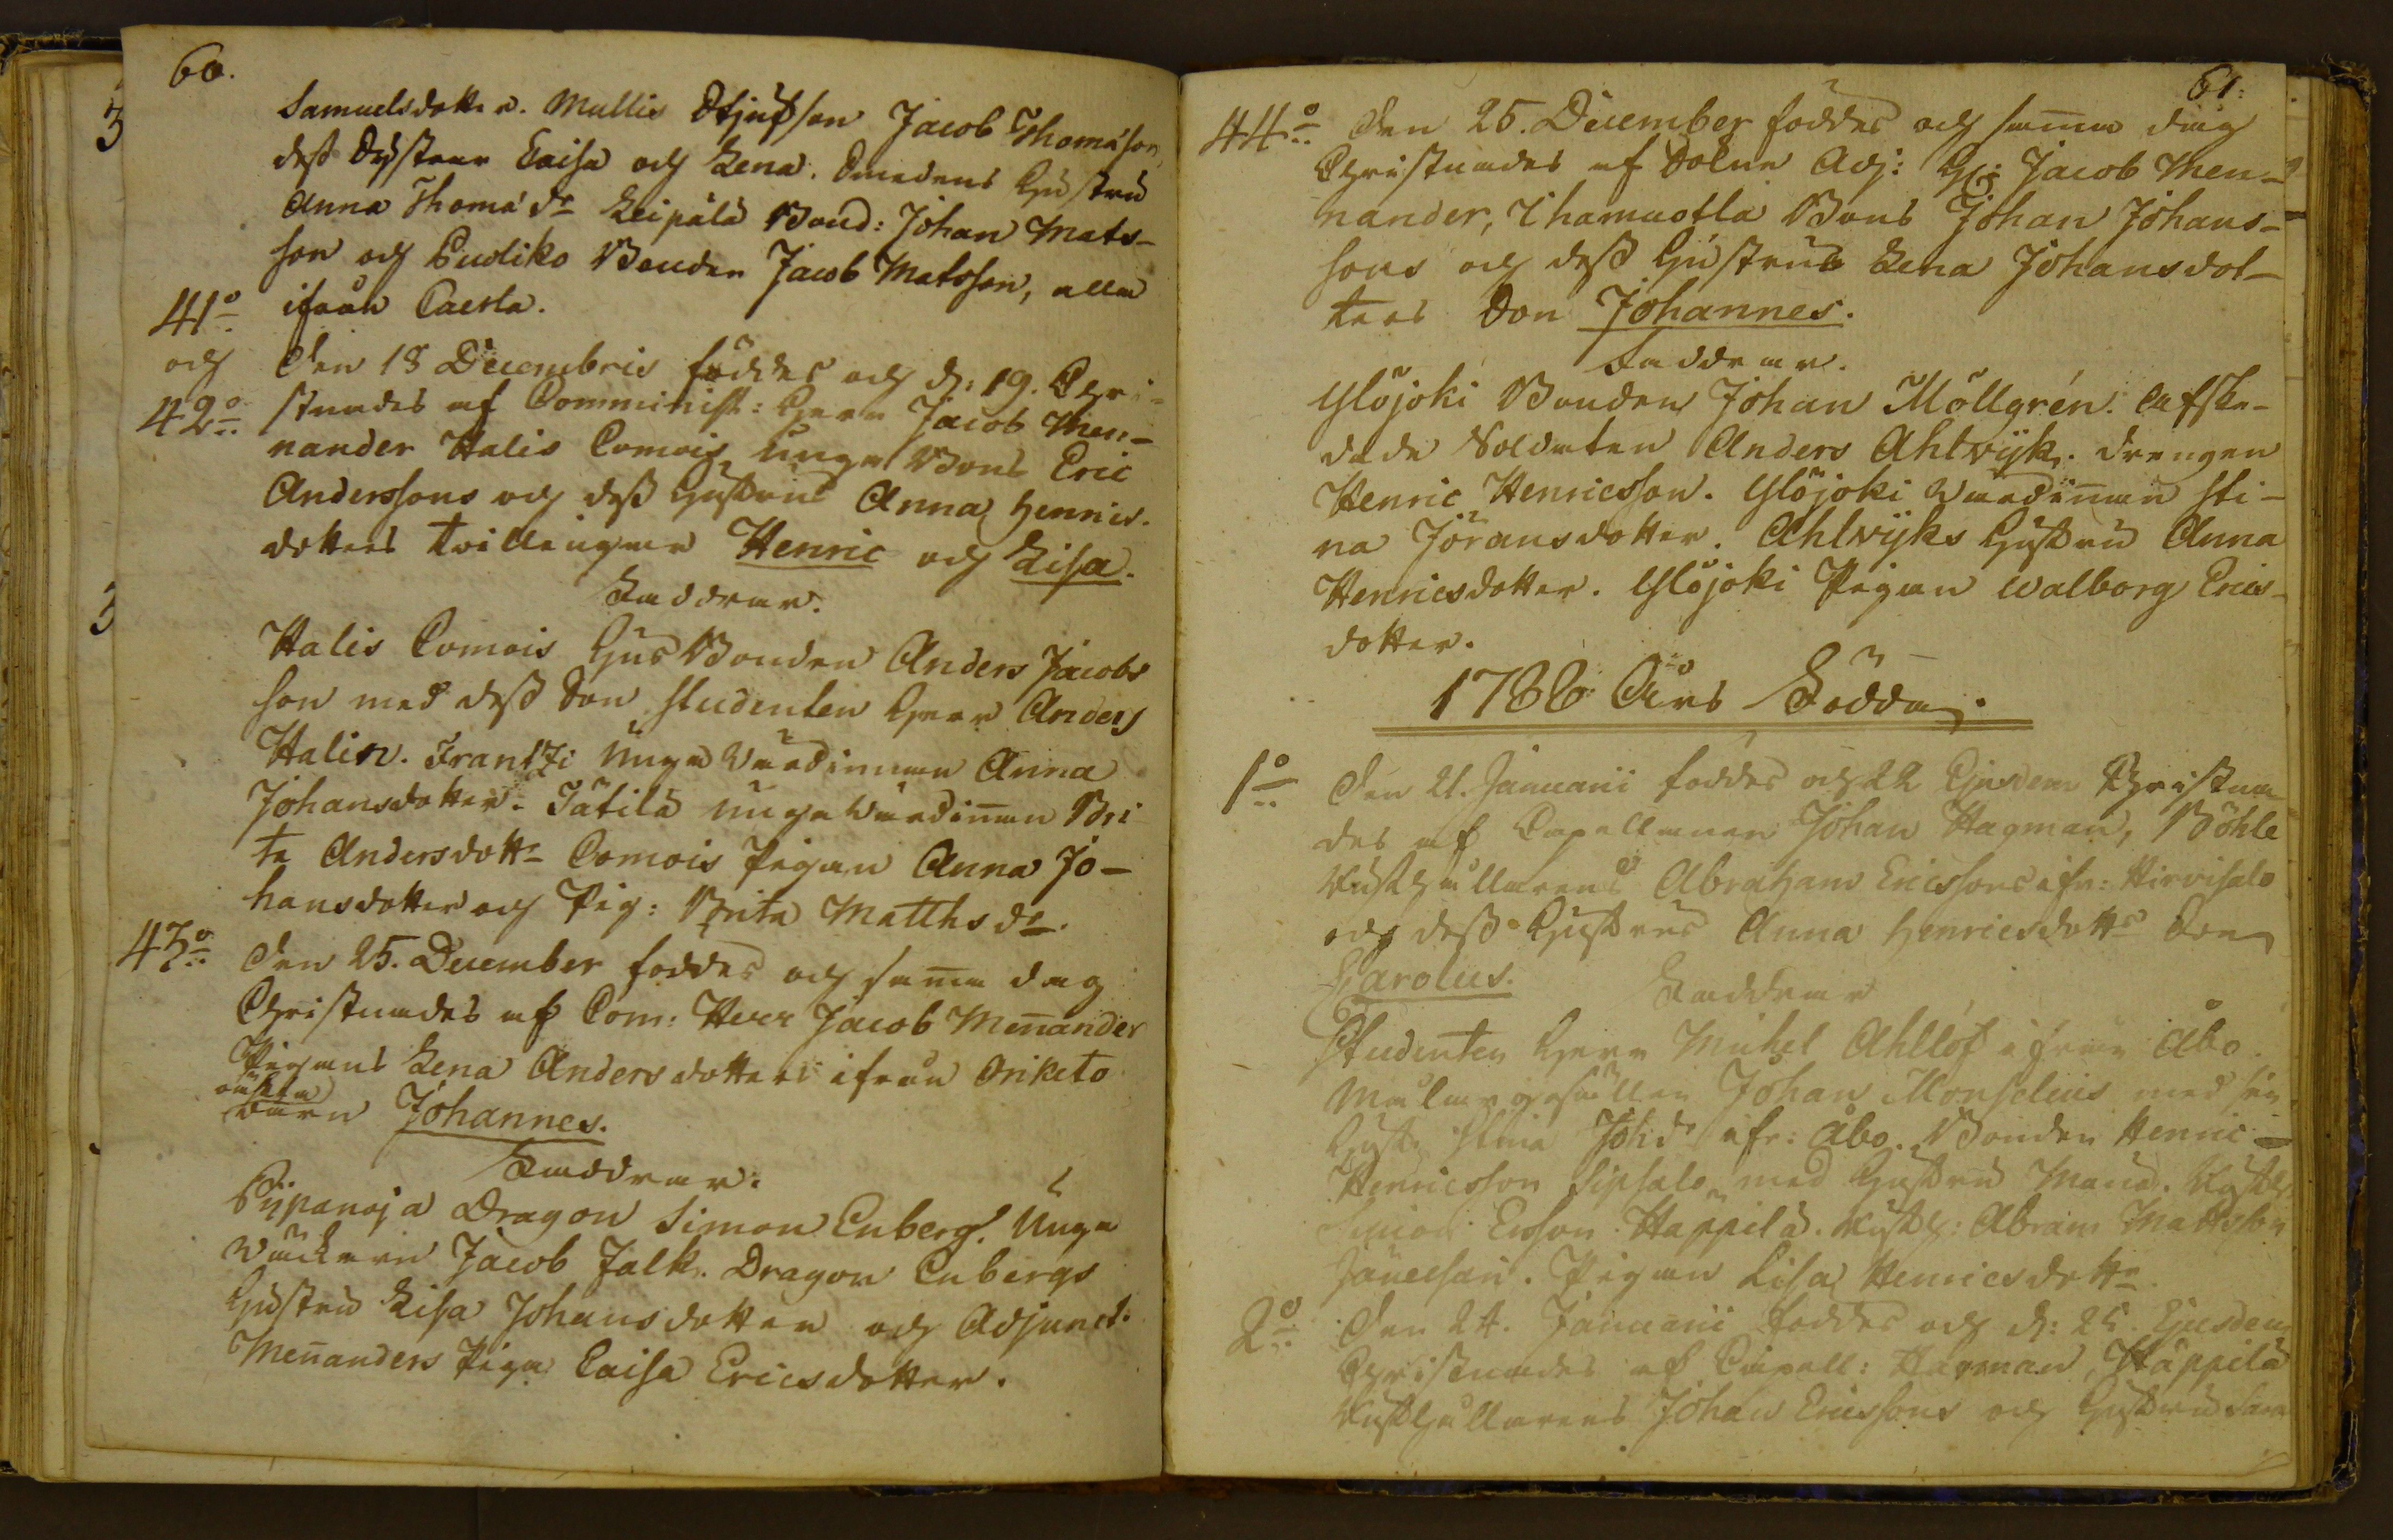 60.
Samuelsdotter. Mullis Stjufson Jacob Thomasson,
dess Systrar Caisa och Lena. Smedens Hustru
Anna Thomæ dr Leipälä Bond: Johan Mats-
son och Pudiko Bonden Jacob Matsson, alla
ifrån Caerla.
41o och 42o
Den 18 Decembris föddes och d: 19. Chri-
stnades af Comminist: Herr Jacob Men-
nander Halis Comois unga Bons Eric
Anderssons och dess Hustrus Anna Henrics-
dotters tvillingar Henric och Lisa.
Faddrar.
Halis Comois Husbonden Anders Jacobs
son med dess Son Studenten Herr Anders
Halin. Frantzi unga Värdinnan Anna
Johansdotter. Tätilä unga Värdinnan Bri
ta Andersdottr Comois Pigan Anna Jo-
hansdotter och Pig: Brita Matths dr.
43o Den 25. December föddes och samma dag
Christnades af Com: Herr Jacob Mennander
Pigans Lena Andersdotters ifrån Oriketo
oäkta
Barn Johannes.
Faddrar.
Pijpanoja Dragon Simon Enberg. Unga
Jacob Falk. Dragon Enbergs
Hustru Lisa Johansdotter och Adjunct.
Mennanders Piga Caisa Ericsdotter.
61:
44o Den 25. December föddes och samma dag
Christnades af Solne Adj: H: Jacob Men-
nander, Ihamuotla Bons Johan Johans-
sons och dess Hustrus Lena Johansdot-
ters Son Johannes.
Faddrar.
Ylöjoki Bonden Johan Möllgrén. Afske-
dade Soldaten Anders Ahlwijk. Drengen
Henric Henricsson. Ylöjoki Värdinnan Sti-
na Jöransdotter. Ahlwijks Hustru Anna
Henricsdotter. Ylöjoki Pigan Walborg Erics-
dotter.
1788 Års Födda.
1o Den 21. Januarii föddes och 22 Ejusdem Christna
des af Capellanen Johan Hagman, Böhle
Abrahams Ericssons ifr: Hirvisalo
och dess Hustrus Anna Henricsdottrs Son
Carolus. Faddrar
Studenten Herr Michel Ahllöf ifrån Åbo.
Målaregesällen Johan Monselius med sin
Hustr Stina Joh dr ifr: Åbo. Bonden Henric
Henricsson Sipsalo med Hustru Maria.
Simon Ersson Happilä. Abram Mattsson
Pigan Lisa Henricsdottr.
2o Den 24. Januarii föddes och d: 25. Ejusdem
Christnades af Capell: Hagman, Häppilä
Johan Ericssons och Hustrus Sara